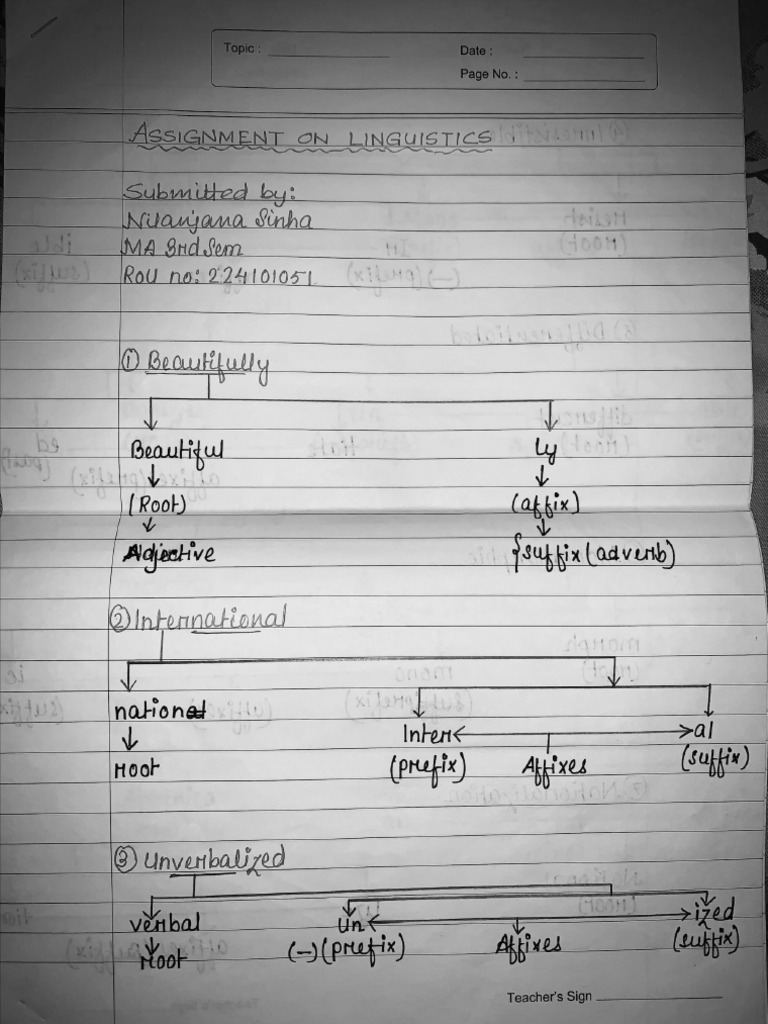 Topic :
Date :
Page No. :
ASSIGNMENT ON LINGUISTICS
Submitted by:
Nilanjana Sinha
MA 3rd Sem
Roll no: 224101051
① Beautifully
Beautiful ly
(Root) (affix)
Adjective {suffix (adverb)
② International
national
Inter al
root (prefix) Affixes (suffix)
③ Unverbalized
verbal un ized
root (-) (prefix) Affixes (suffix)
Teacher's Sign